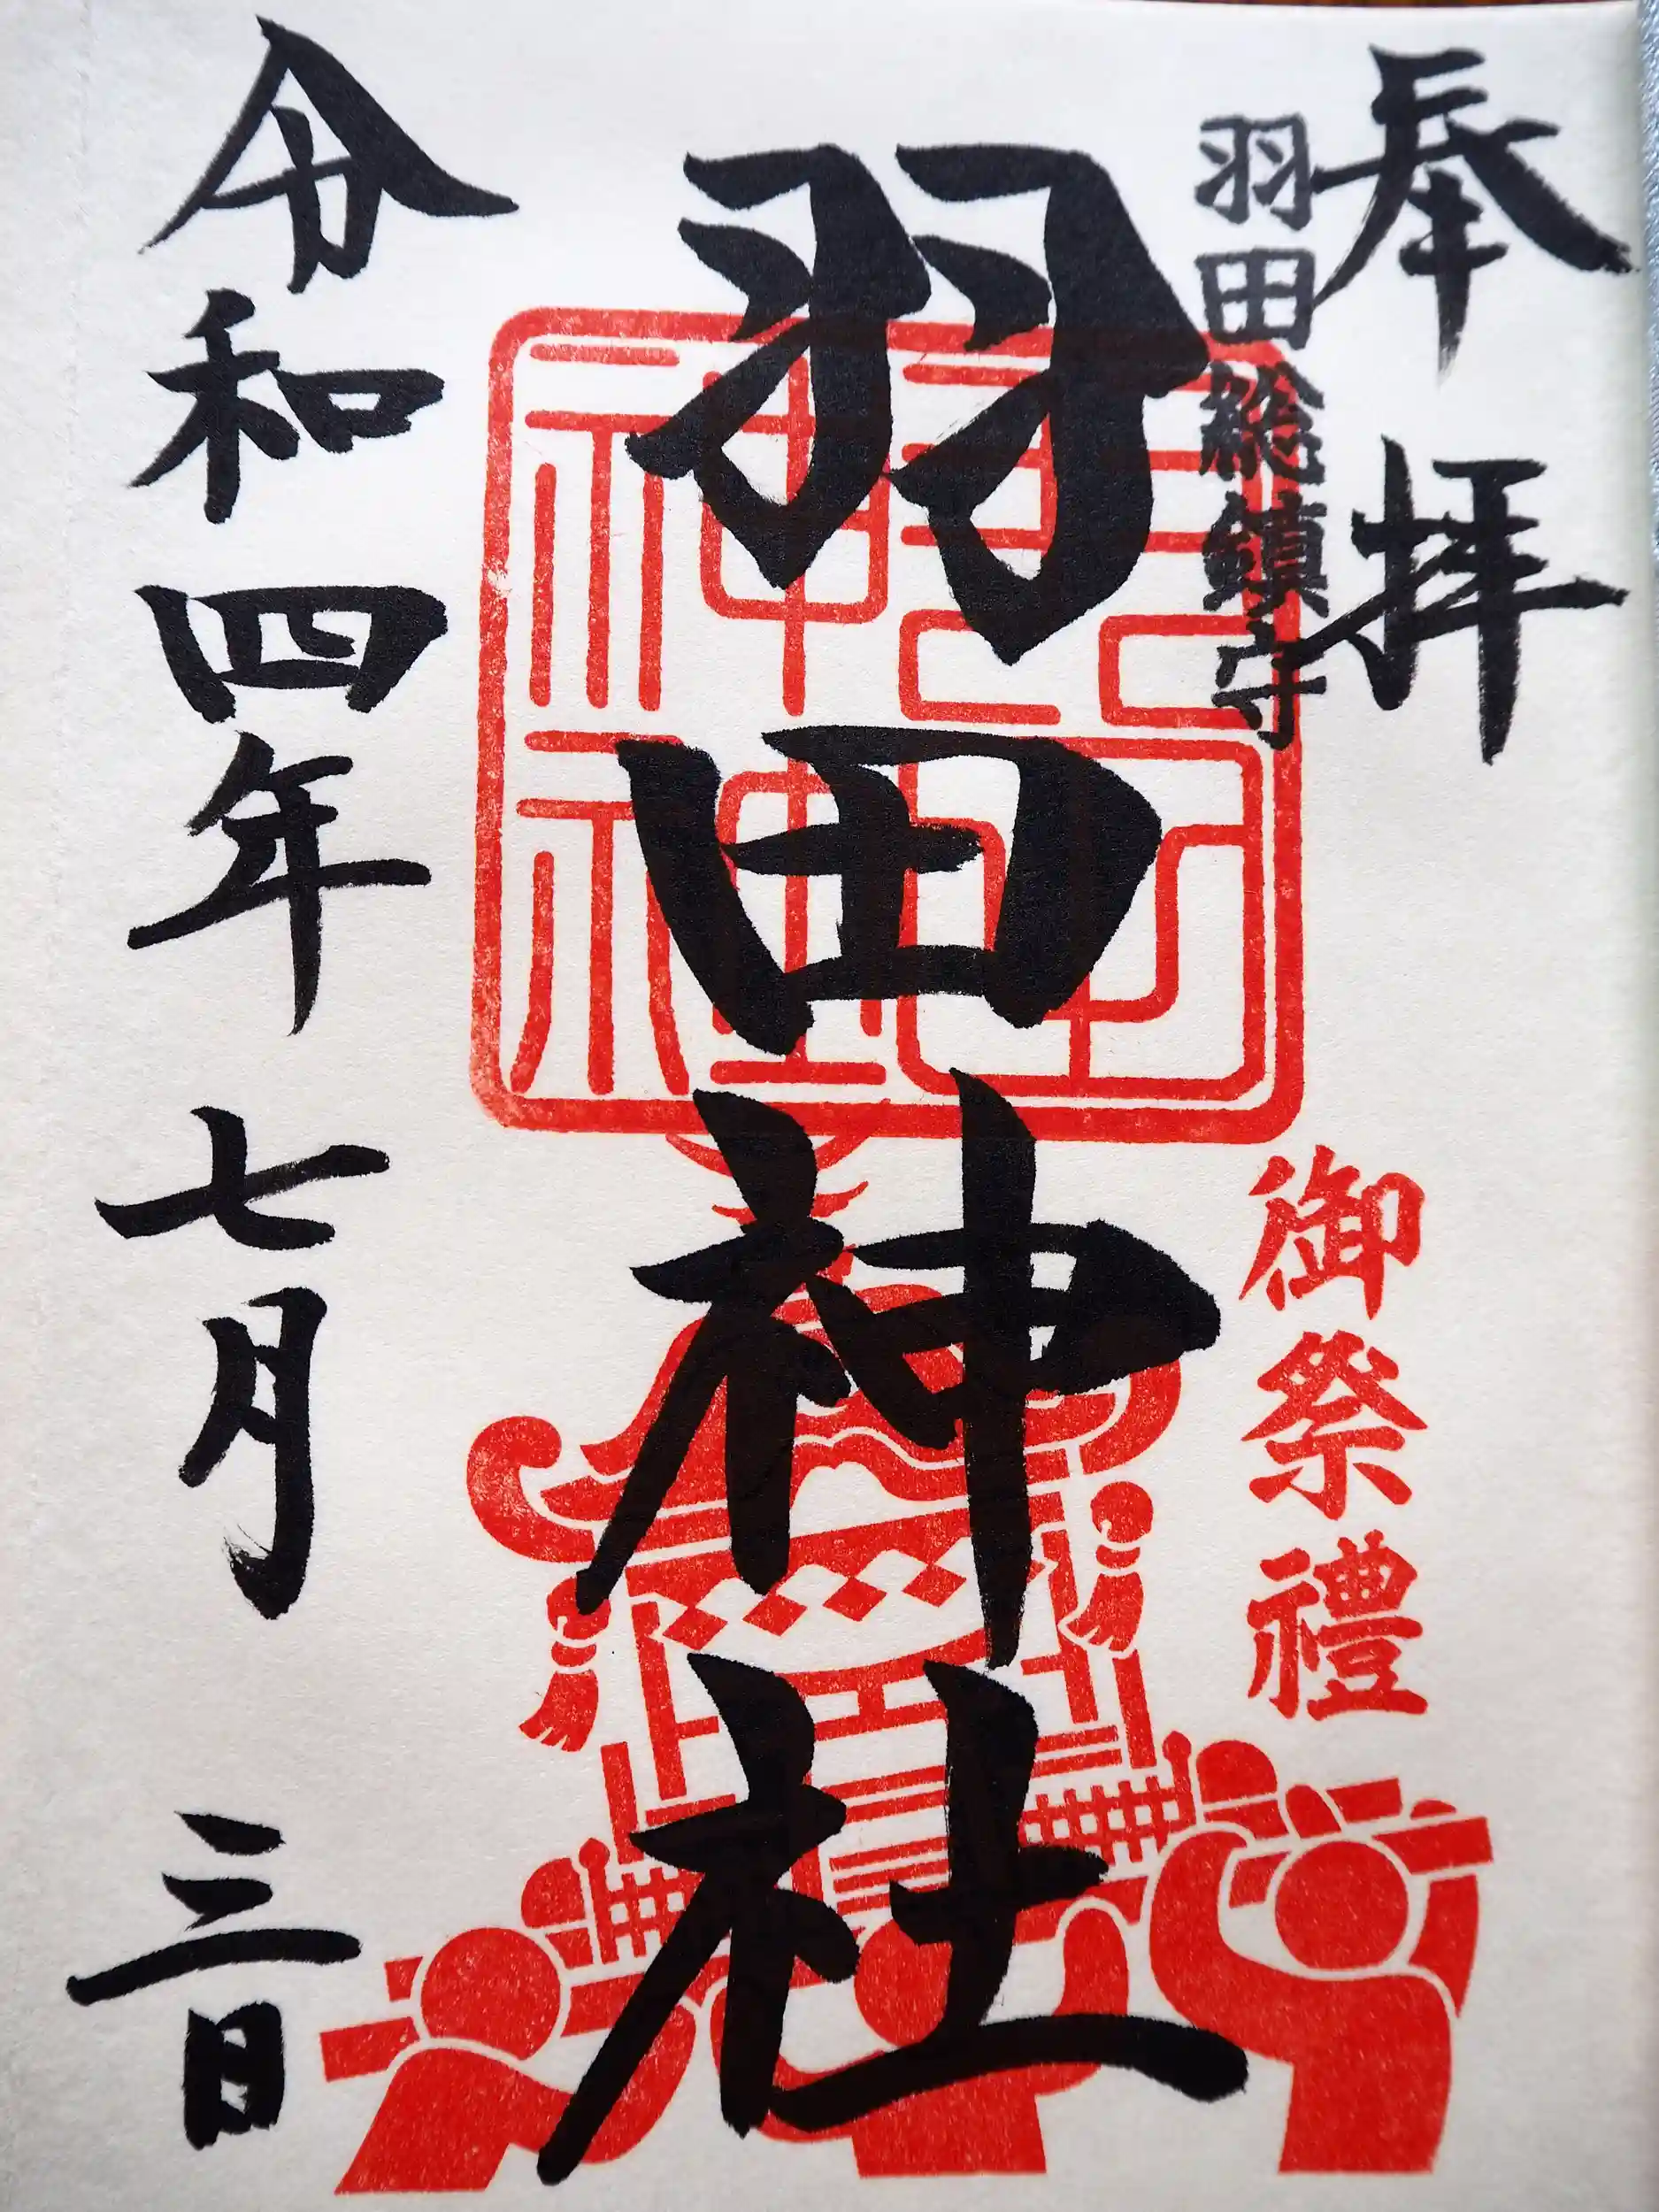 奉拝
羽田総鎮守
御祭禮
羽田神社
令和四年七月三日